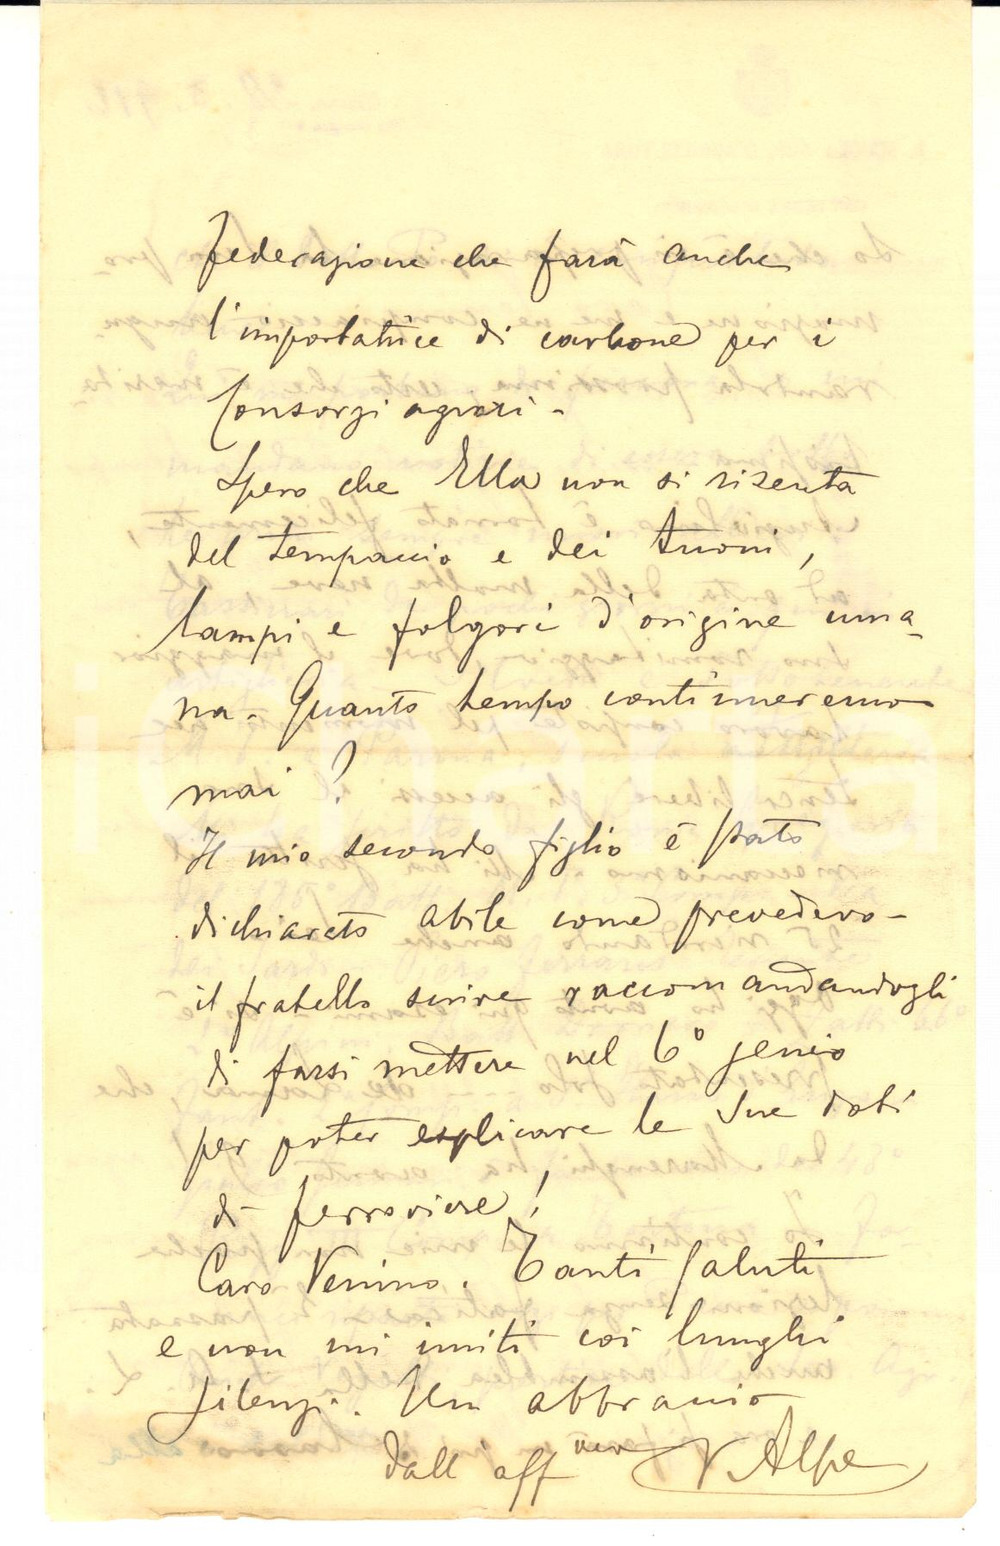 Federazione che farà anche
l'importatrice di carbone per i
Consorzi agrari -
Spero che Ella non si risenta
del tempaccio e dei tuoni,
lampi e folgori d'origine uma-
na. Quanto tempo continueremo
mai?
Il mio secondo figlio è stato
dichiarato abile come prevedevo -
il fratello scrive raccomandandogli
di farsi mettere nel 6° genio
per poter esplicare le sue doti
di ferroviere!
Caro Venino. Tanti saluti
e non mi imiti coi lunghi
silenzi. Un abbraccio
dall aff V. Alpe